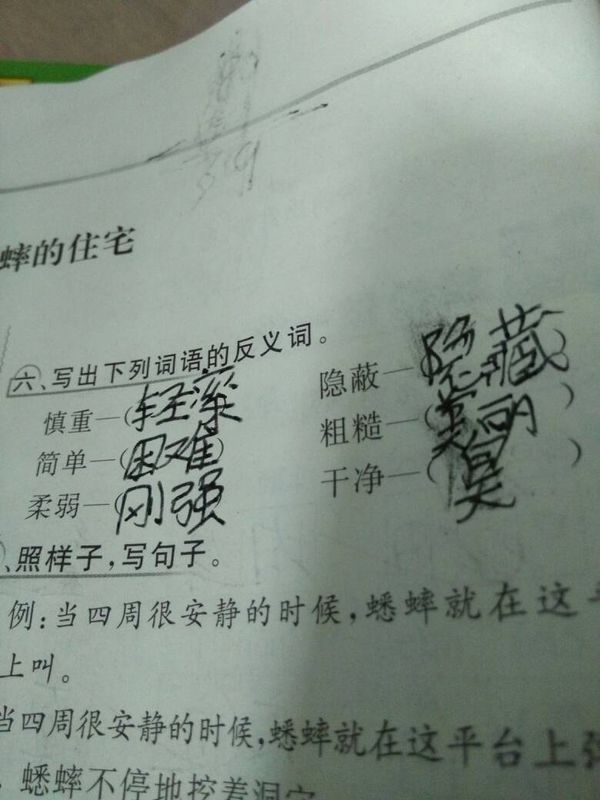 蟀的住宅
六、写出下列词语的反义词。
慎重—(轻深 隐蔽—(隐藏)
简单—(困难) 粗糙—(美丽)
柔弱—(刚强 干净—(臭)
、照样子,写句子。
例:当四周很安静的时候,蟋蟀就在这平
上叫。
当四周很安静的时候,蟋蟀就在这平台上弹
,蟋蟀不停地挖着洞穴